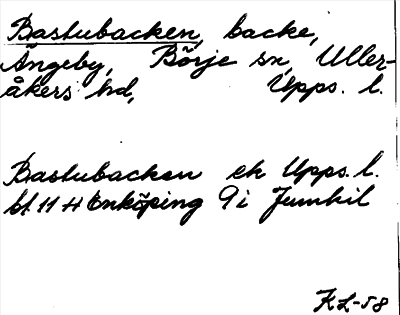 Bastubacken, backe,
Ängeby, Börje sn, Uller-
åkers hd, Upps. l.
Bastubacken ek Upps. l.
bl. 11 H Enköping 9 i Jumkil
KL-58